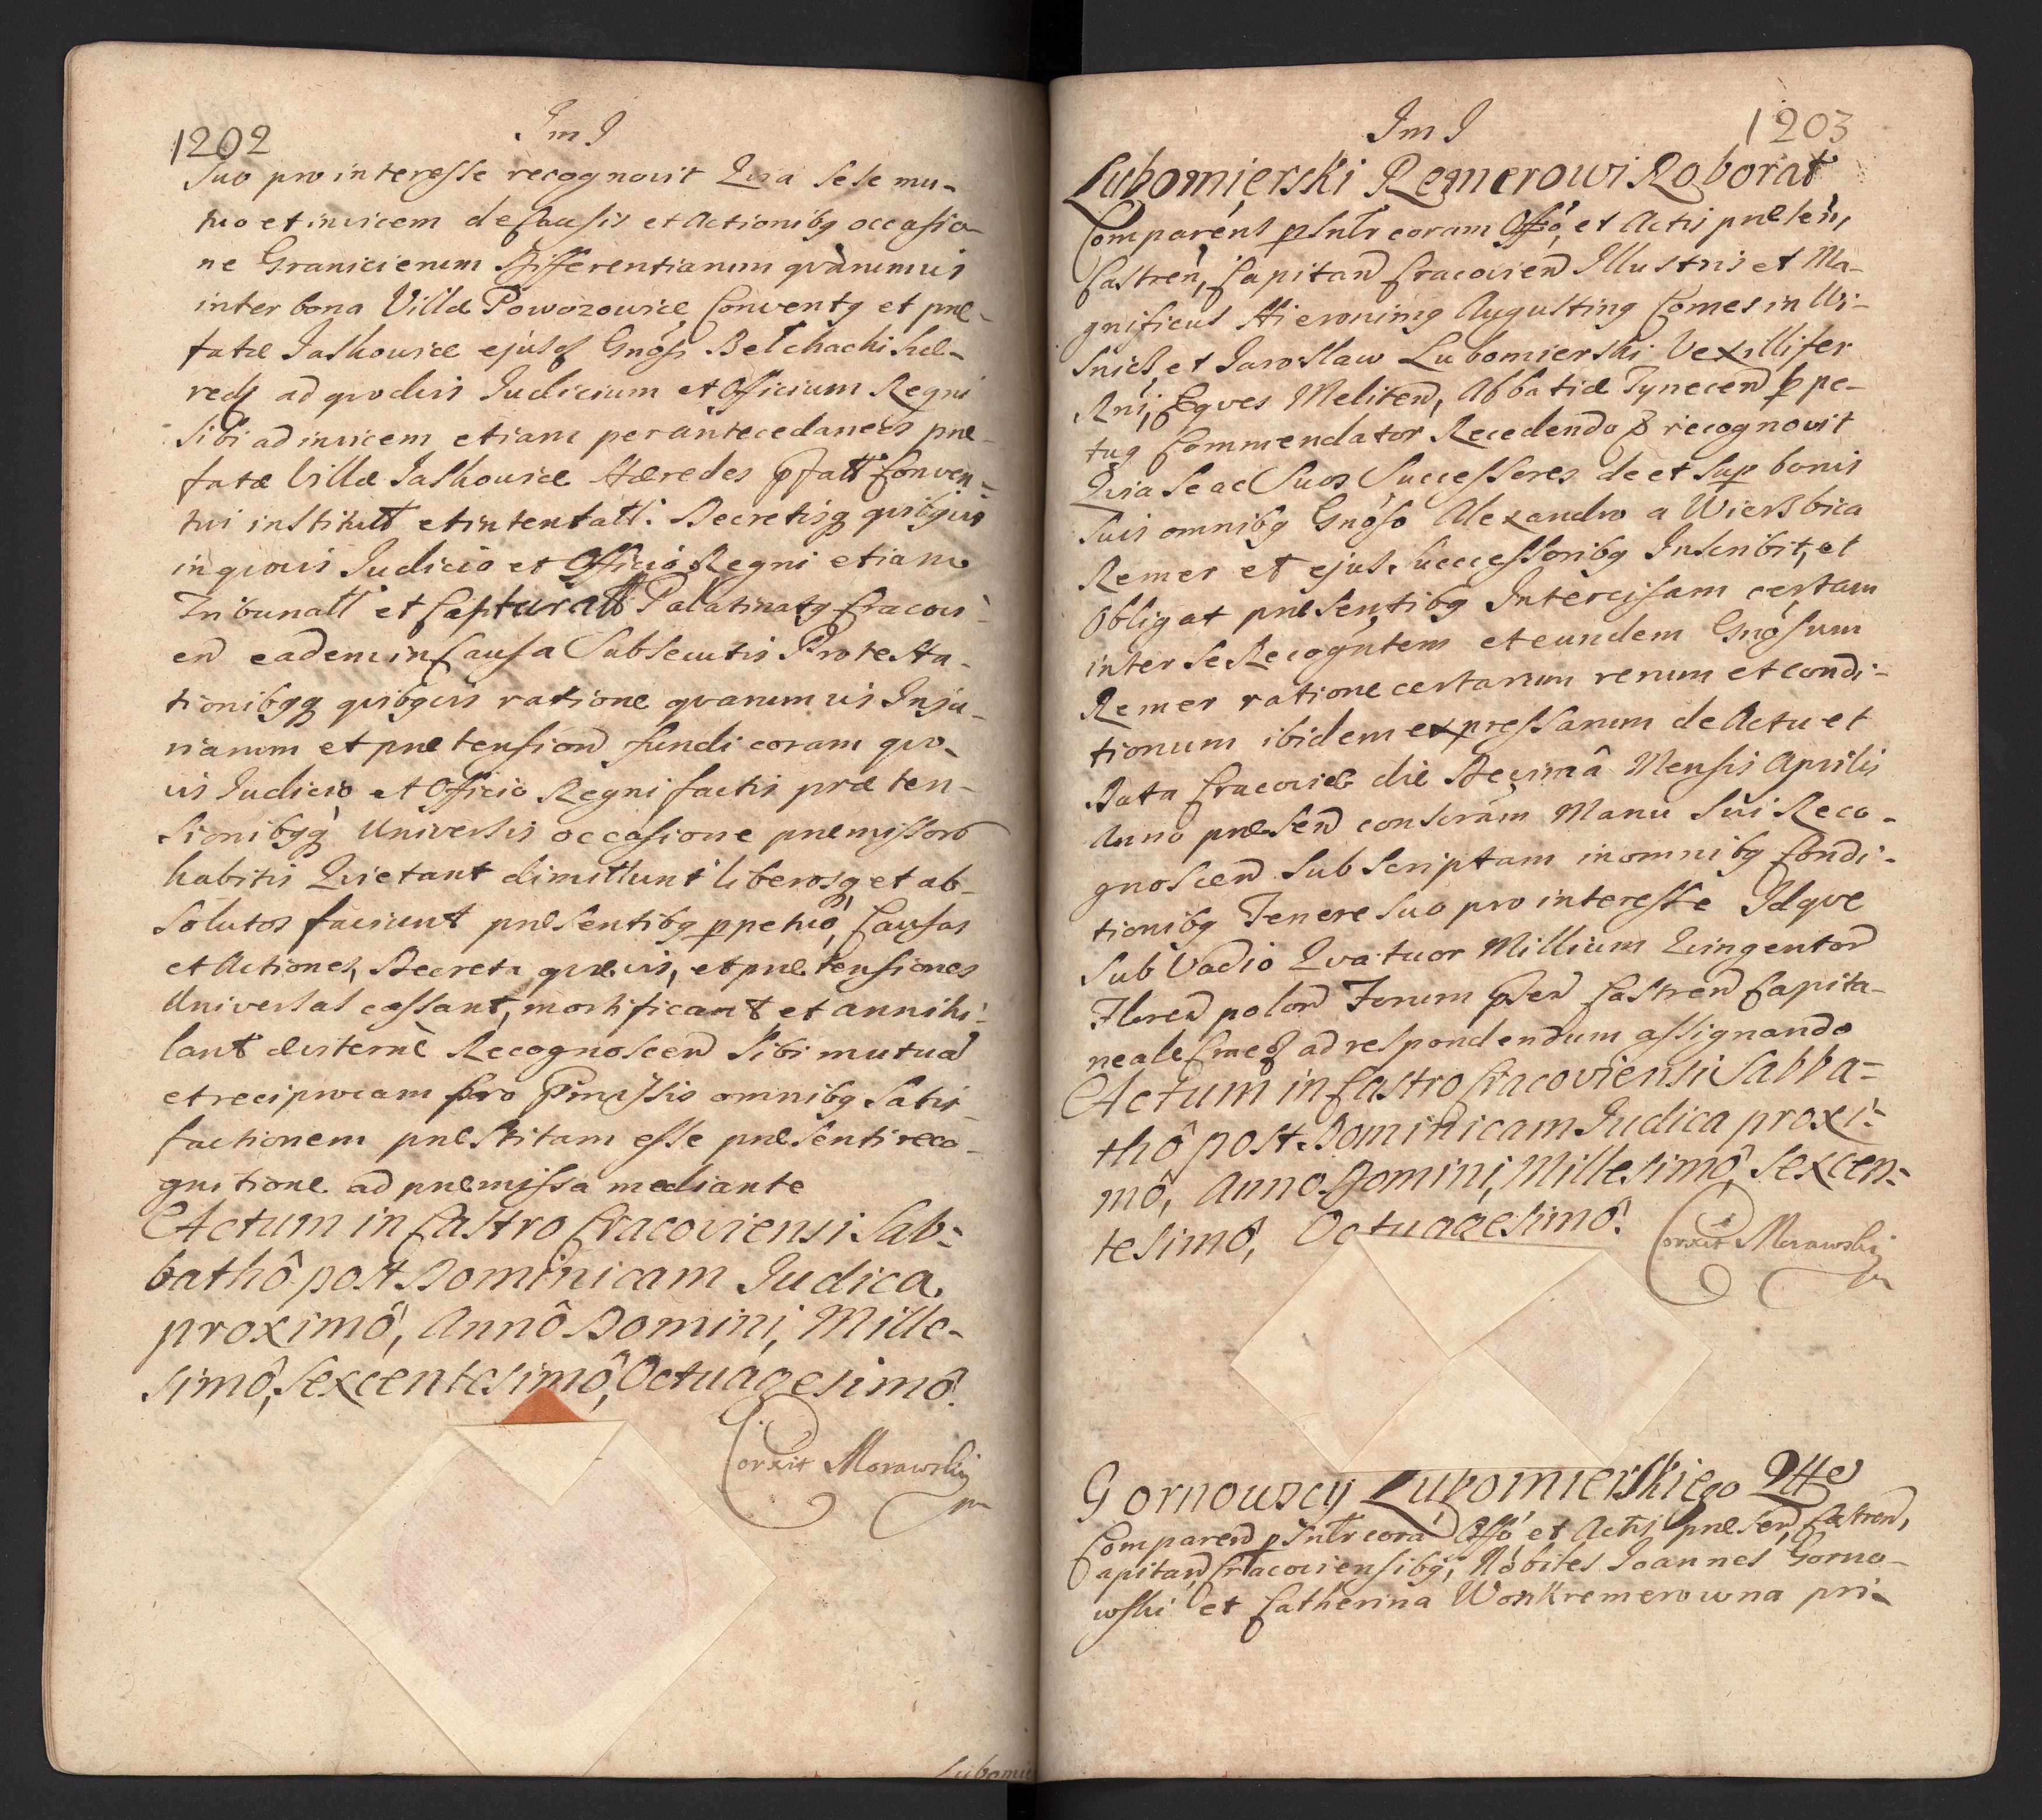 1202
Im I
suo pro interesse recognovit Quia sese mu-
tuo et invicem de causis et Actionibq occasio-
ne Granicierum Differentiarum qvarumvis
inter bona Villæ Powozowice Conventq et præ-
fatæ Jaskowice ejusq Gnosi Bełchacki hæ-
redq ad qvodvis Judicium et Officium Regni
sibi ad invicem etiam per antecedaneos præ-
fatæ Villæ Jaskowice Hæredes pfatt Conven-
tui institutt et intentatt. Decretisq qvibqvis
in qvovis Judicio et Officio Regni etiam
Tribunall et Capturall Palatinatq Cracovi-
en eadem in Causa Subsecutis Protesta-
tionibqq qvibqvis ratione qvarumvis Inju-
riarum et prætension fundi coram qvo-
vis Judicio et Officio Regni factis præten-
sionibqq Universis occasione præmissor
habitis Qvietant dimittunt liberosq et ab-
solutos faciunt præsentibq ppetuo, Causas
et Actiones, Decreta qvævis, et prætensiones
Universas cassant, mortificant et annihi-
lant æviterne Recognoscen sibi mutua
et reciprocam pro Pmissis omnibq Satis-
factionem præstitam esse præsenti reco-
gnitione ad præmissa mediante
Actum in Castro Cracoviensi Sab-
bathô post Dominicam Judica
proximô, Annô Domini, Mille-
simô, Sexcentesimô, Octuagesimô.
Corrxit Morawskij
Lubomie
1203
Im I
Lubomierski Remerowi Roborat
Comparens psntr coram Offo, et Actis præsen,
Castren, Capitan Cracovien Illustris et Ma-
gnificus Hieronimq Augustinq Comes in Wi-
snicz et Jaroslaw Lubomierski Vexillifer
Rni, Eqves Meliten, Abbatiæ Tynecen ppe-
tuq Commendator Recedendo & recognovit
Quia se ac Suos Successores de et sup bonis
suis omnibq Gnoso Alexandro a Wierzbica
Remer et ejus Successoribq Inscribit, et
Obligat præsentibq Intercisam certam
inter se Recogntem et eundem Gnosum
Remer ratione certarum rerum et condi-
tionum ibidem expressarum de Actu et
Data Cracoviæ die Decimâ Mensis Aprilis
Anno præsen conscram Manu sui Reco-
gnoscen subscriptam in omnibq Condi-
tionibq Tenere suo pro interesse Idqve
sub Vadio Qvatuor Millium Qvingentor
Floren polon Forum psen Castren Capita-
neale Cracq ad respondendum assignando
Actum in Castro Cracoviensi Sabba-
thô post Dominicam Judica proxi-
mô, Anno Domini, Millesimô, Sexcen-
tesimô, Octuagesimô.
Corrxit Morawskij
Gornowscy Lubomierskiego Qtte
Comparen psntr cora Offo, et Actis præsen, Castren,
Capitan Cracoviensibq, Nobiles Joannes Gorno-
wski et Catherina Wonkremerowna pri-